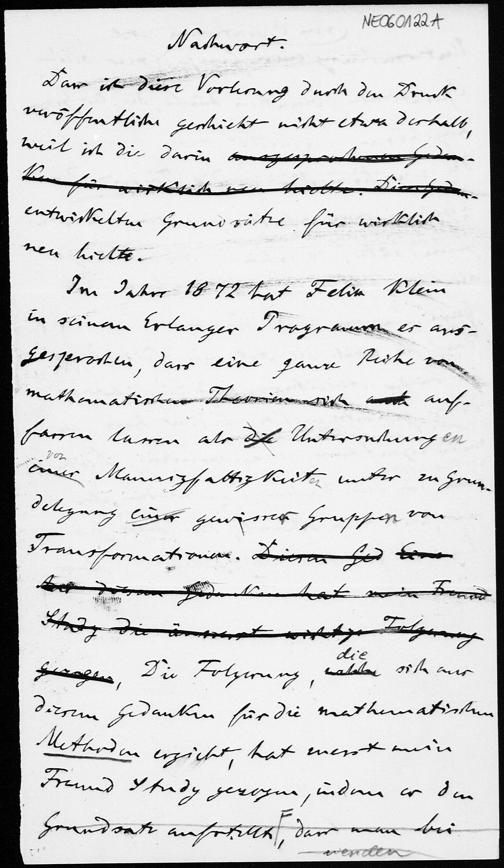 NE060122A
Nachwort.
Dass ich diese Vorlesung durch den Druck
veröffentliche geschieht nicht etwa deshalb,
weil ich die darin ausgesprochenen Gedan-
ken für wirklich neu hielte. Diese Gedan-
entwickelten Grundsätze für wirklich
neu hielte.
Im Jahre 1872 hat Felix Klein
in seinem Erlanger Programm es aus-
gesprochen, dass eine ganze Reihe von
mathematischen Theorien sich auf-
fassen lassen als die Untersuchungen
von
einer Mannigfaltigkeiten unter zu Grun-
delegung einer gewisser Gruppen von
Transformationen. Diesen Ged Eine
aus diesem Gedanken hat mein Freund
Study die äusserst wichtige Folgerung
gezogen, Die Folgerung,
die
welche sich aus
diesem Gedanken für die mathematischen
Methoden ergiebt, hat zuerst mein
Freund Study gezogen, indem er den
Grundsatz aufstellt, dass man bei
werden